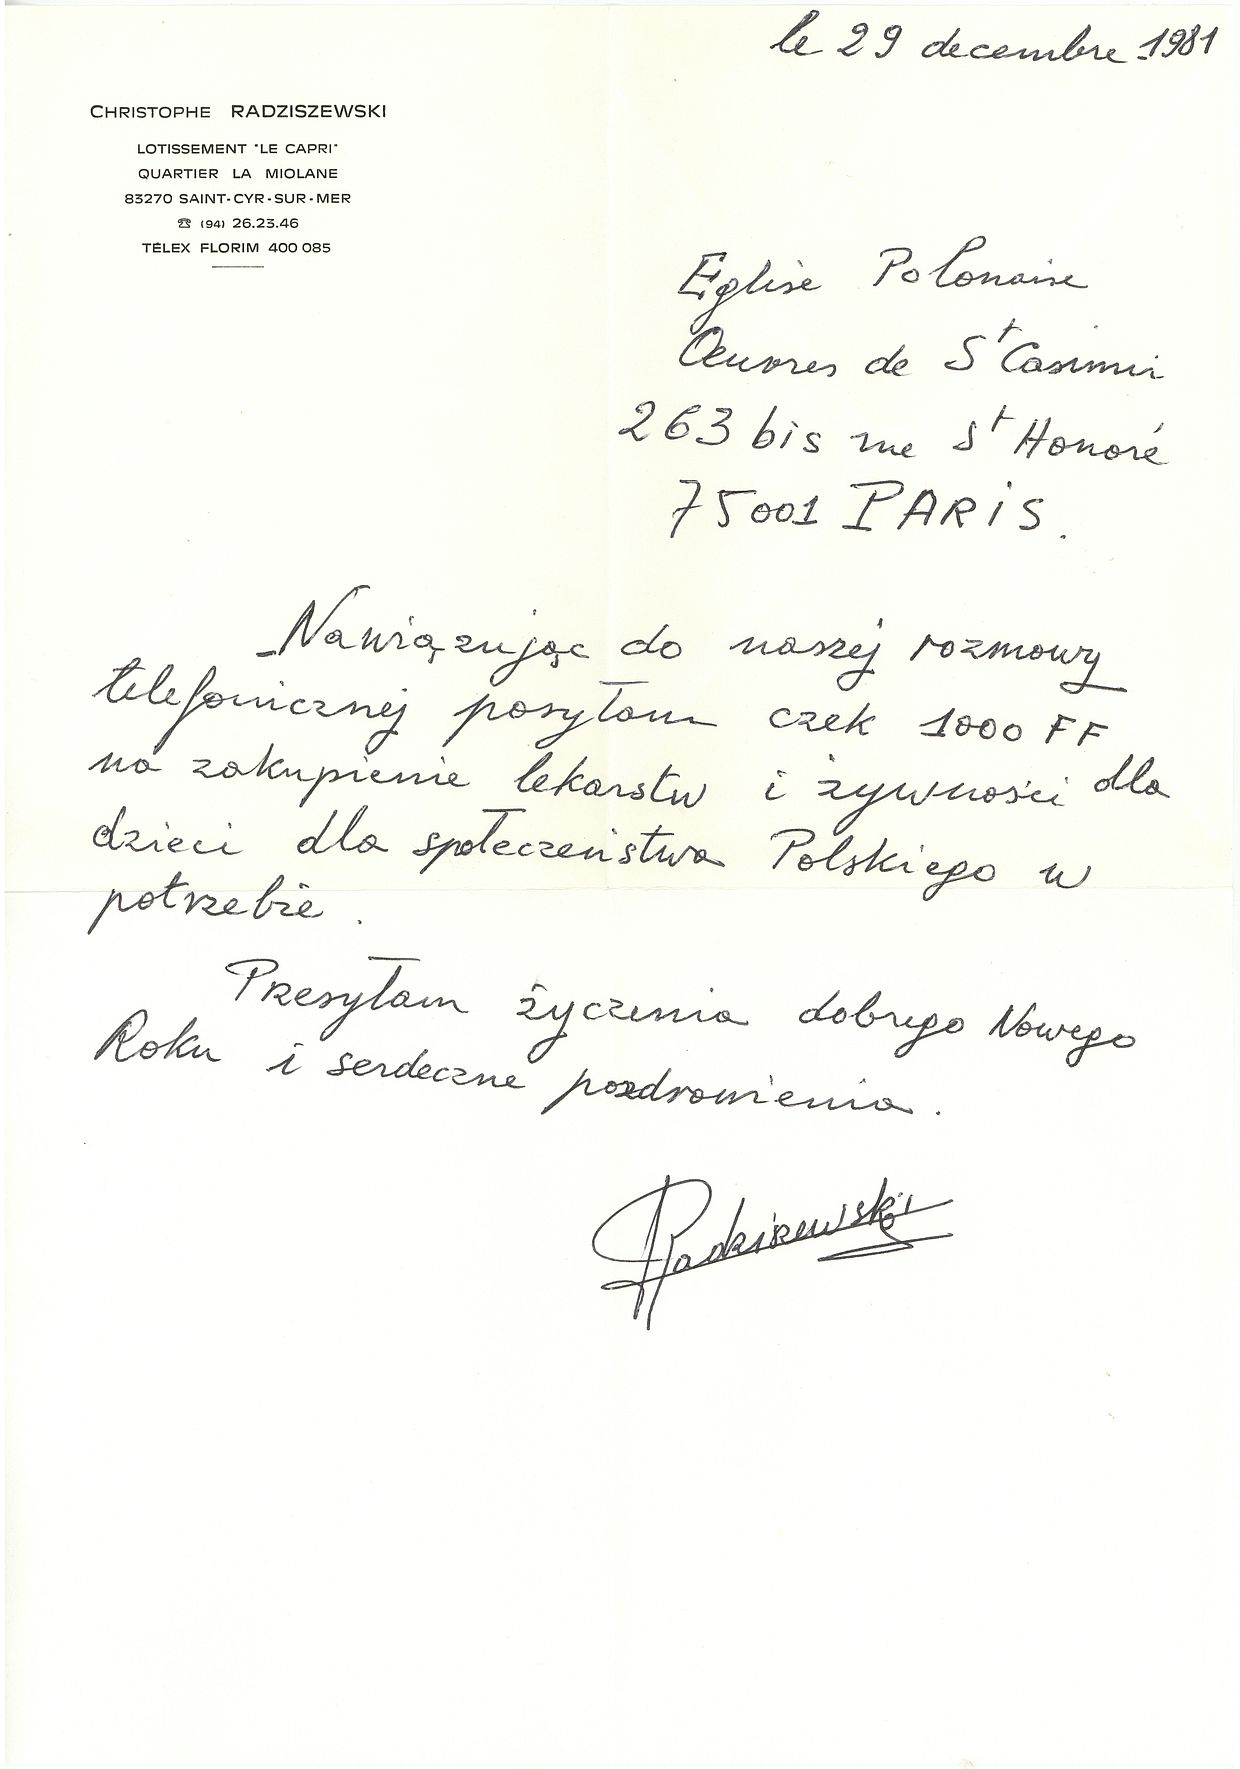 le 29 decembre 1981
CHRISTOPHE RADZISZEWSKI
LOTISSEMENT "LE CAPRI"
QUARTIER LA MIOLANE
83270 SAINT-CYR-SUR-MER
☎ (94) 26.23.46
TÉLEX FLORIM 400 085
Eglise Polonaise
Œuvres de St Casimir
263 bis rue St Honoré
75001 PARIS.
Nawiązując do naszej rozmowy
telefonicznej posyłam czek 1000 FF
na zakupienie lekarstw i żywności dla
dzieci dla społeczeństwa Polskiego w
potrzebie.
Przesyłam życzenia dobrego Nowego
Roku i serdeczne pozdrowienia.
Radziszewski